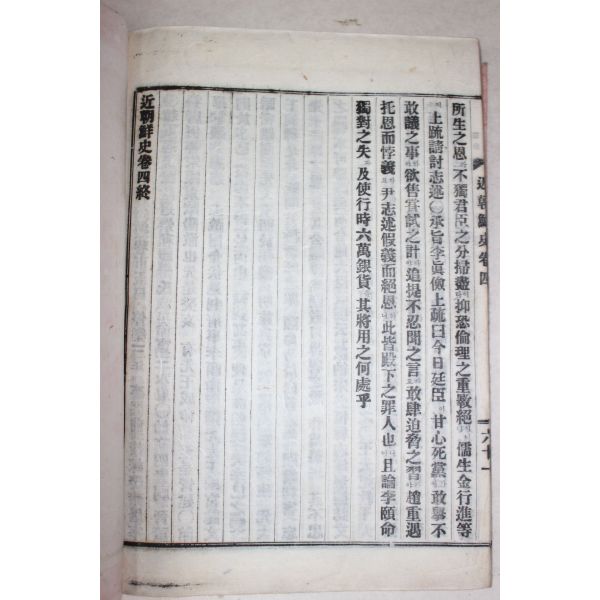 近朝鮮史卷四
六十一
所生之恩 不獨君臣之分掃盡 抑恐倫理之重斁絕 儒生金行進等
上疏請討志述○承旨李眞儉上疏曰今日廷臣 甘心死黨 敢擧不
敢議之事 欲售嘗試之計 追提不忍聞之言 敢肆迫脅之習 趙重遇
托恩而悖義 尹志述假義而絕恩 此皆殿下之罪人也 且論李頤命
獨對之失 及使行時六萬銀貨 其將用之何處乎
近朝鮮史卷四終